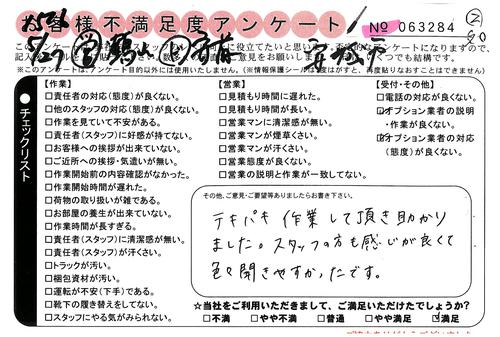 お客様不満足度アンケート
No 063284
②
5/29
※このアンケートは、アンケート目的以外には使用いたしません。(※情報保護シールは1度はがすと、再度貼りなおすことはできません)
チェックリスト
【作業】
□責任者の対応(態度)が良くない。
□他のスタッフの対応(態度)が良くない。
□作業を見ていて不安がある。
□責任者(スタッフ)に好感が持てない。
□お客様への挨拶が出来ていない。
□ご近所への挨拶・気遣いが無い。
□作業開始前の内容確認がなかった。
□作業開始時間が遅れた。
□荷物の取り扱いが雑である。
□お部屋の養生が出来ていない。
□作業時間が長すぎる。
□責任者(スタッフ)に清潔感が無い。
□責任者(スタッフ)が汗くさい。
□トラックが汚い。
□梱包資材が汚い。
□運転が不安(下手)である。
□靴下の履き替えをしてない。
□スタッフにやる気がみられない。
【営業】
□見積もり時間に遅れた。
□見積もり時間が長い。
□営業マンに清潔感が無い。
□営業マンが煙草くさい。
□営業マンが汗くさい。
□営業態度が良くない。
□営業の説明と作業が一致してない。
【受付・その他】
□電話の対応が良くない。
□オプション業者の説明
・作業が良くない。
□オプション業者の対応
(態度)が良くない。
その他、ご意見・ご要望等ありましたらお書き下さい。
テキパキ作業して頂き助かり
ました。スタッフの方も感じが良くて
色々聞きやすかったです。
☆当社をご利用いただきまして、ご満足いただけたでしょうか?
□不満 □やや不満 □普通 □やや満足 ☑満足